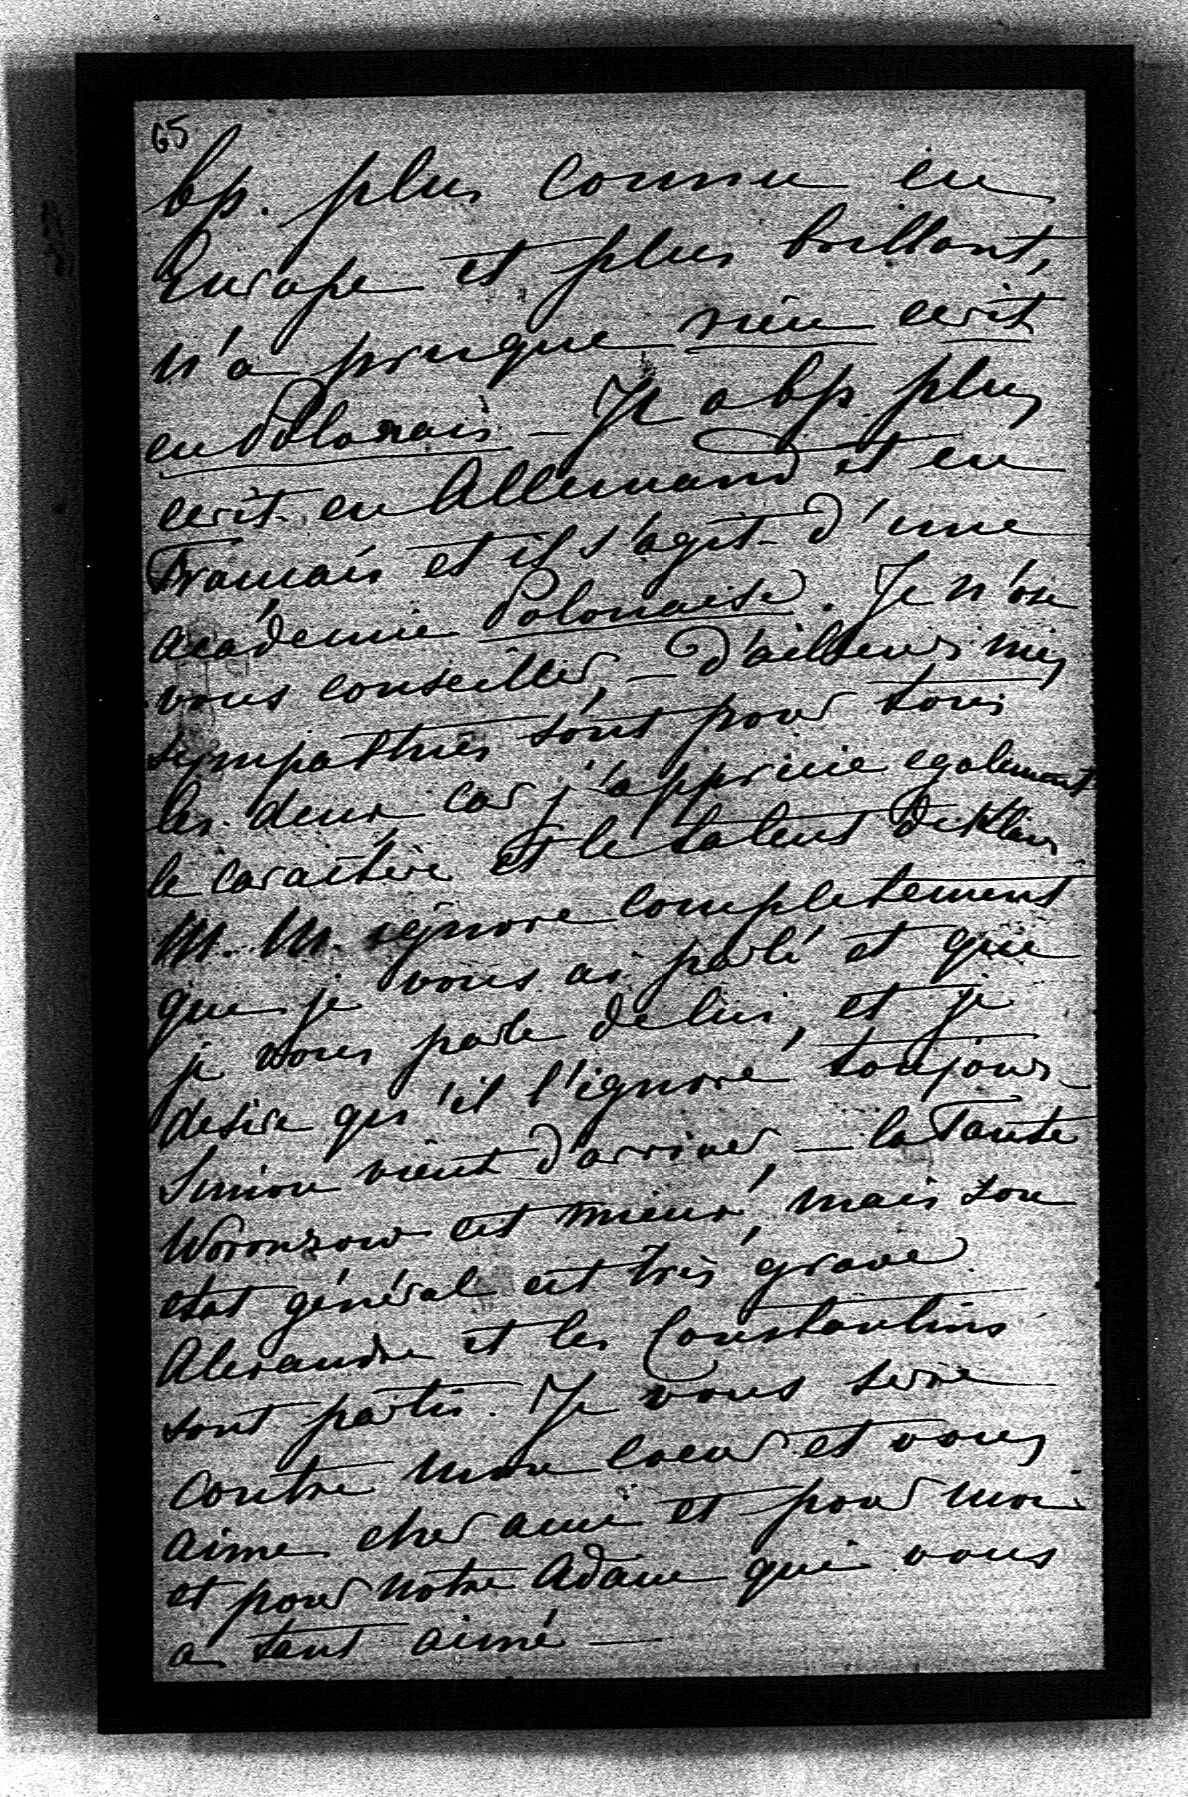 65
bp. plus connu en
Europe et plus brillant,
n'a presque rien ecrit
en Polonais – Il a bp. plus
ecrit en Allemand et en
Francais et il s'agit d'une
academie Polonaise. Je n'ose
vous conseiller, – d'ailleurs mes
sympathies sont pour tous
les deux car j'apprecie egalement
le caractère et le talent de Klaz
M. M. ignore completement
que je vous ai parlé et que
je vous parle de lui, et je
desire qu'il l'ignore toujours –
Simon vient d'arriver, – la Tante
Woronzow est mieux, mais son
etat général est très grave.
Alexandre et les Constantins
sont partis. Je vous serre
contre mon coeur et vous
aime cher ami et pour moi
et pour notre Adam qui vous
a tant aimé –